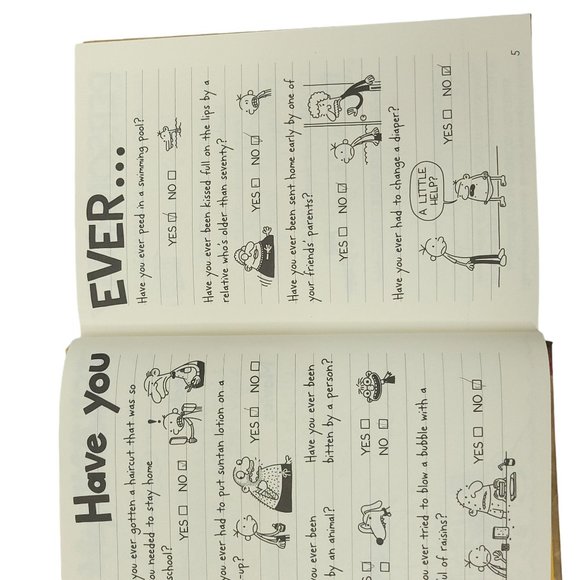 Have you
you ever gotten a haircut that was so
you needed to stay home
school?
YES ☐ NO ☑
you ever had to put suntan lotion on a
-up?
YES ☑ NO ☐
you ever been
by an animal?
Have you ever been
bitten by a person?
YES ☐
NO ☐
ever tried to blow a bubble with a
ful of raisins?
YES ☐ NO ☑
EVER...
Have you ever peed in a swimming pool?
YES ☑ NO ☐
Have you ever been kissed full on the lips by a
relative who's older than seventy?
YES ☐ NO ☑
Have you ever been sent home early by one of
your friends' parents?
YES ☐ NO ☑
Have you ever had to change a diaper?
A LITTLE
HELP?
YES ☐ NO ☑
5